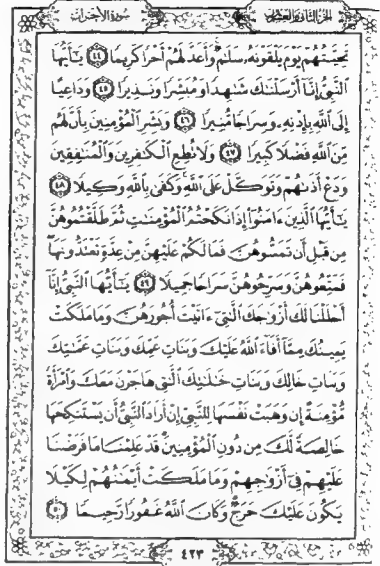 الجزء الثاني والعشرون سورة الأحزاب
تَحِيَّتُهُمْ يَوْمَ يَلْقَوْنَهُۥ سَلَٰمٌ وَأَعَدَّ لَهُمْ أَجْرًا كَرِيمًا ٤٤ يَٰٓأَيُّهَا
ٱلنَّبِىُّ إِنَّآ أَرْسَلْنَٰكَ شَٰهِدًا وَمُبَشِّرًا وَنَذِيرًا ٤٥ وَدَاعِيًا
إِلَى ٱللَّهِ بِإِذْنِهِۦ وَسِرَاجًا مُّنِيرًا ٤٦ وَبَشِّرِ ٱلْمُؤْمِنِينَ بِأَنَّ لَهُم
مِّنَ ٱللَّهِ فَضْلًا كَبِيرًا ٤٧ وَلَا تُطِعِ ٱلْكَٰفِرِينَ وَٱلْمُنَٰفِقِينَ
وَدَعْ أَذَىٰهُمْ وَتَوَكَّلْ عَلَى ٱللَّهِ وَكَفَىٰ بِٱللَّهِ وَكِيلًا ٤٨
يَٰٓأَيُّهَا ٱلَّذِينَ ءَامَنُوٓا۟ إِذَا نَكَحْتُمُ ٱلْمُؤْمِنَٰتِ ثُمَّ طَلَّقْتُمُوهُنَّ
مِن قَبْلِ أَن تَمَسُّوهُنَّ فَمَا لَكُمْ عَلَيْهِنَّ مِنْ عِدَّةٍ تَعْتَدُّونَهَا
فَمَتِّعُوهُنَّ وَسَرِّحُوهُنَّ سَرَاحًا جَمِيلًا ٤٩ يَٰٓأَيُّهَا ٱلنَّبِىُّ إِنَّآ
أَحْلَلْنَا لَكَ أَزْوَٰجَكَ ٱلَّٰتِىٓ ءَاتَيْتَ أُجُورَهُنَّ وَمَا مَلَكَتْ
يَمِينُكَ مِمَّآ أَفَآءَ ٱللَّهُ عَلَيْكَ وَبَنَاتِ عَمِّكَ وَبَنَاتِ عَمَّٰتِكَ
وَبَنَاتِ خَالِكَ وَبَنَاتِ خَٰلَٰتِكَ ٱلَّٰتِى هَاجَرْنَ مَعَكَ وَٱمْرَأَةً
مُّؤْمِنَةً إِن وَهَبَتْ نَفْسَهَا لِلنَّبِىِّ إِنْ أَرَادَ ٱلنَّبِىُّ أَن يَسْتَنكِحَهَا
خَالِصَةً لَّكَ مِن دُونِ ٱلْمُؤْمِنِينَ قَدْ عَلِمْنَا مَا فَرَضْنَا
عَلَيْهِمْ فِىٓ أَزْوَٰجِهِمْ وَمَا مَلَكَتْ أَيْمَٰنُهُمْ لِكَيْلَا
يَكُونَ عَلَيْكَ حَرَجٌ وَكَانَ ٱللَّهُ غَفُورًا رَّحِيمًا ٥٠
٤٢٣